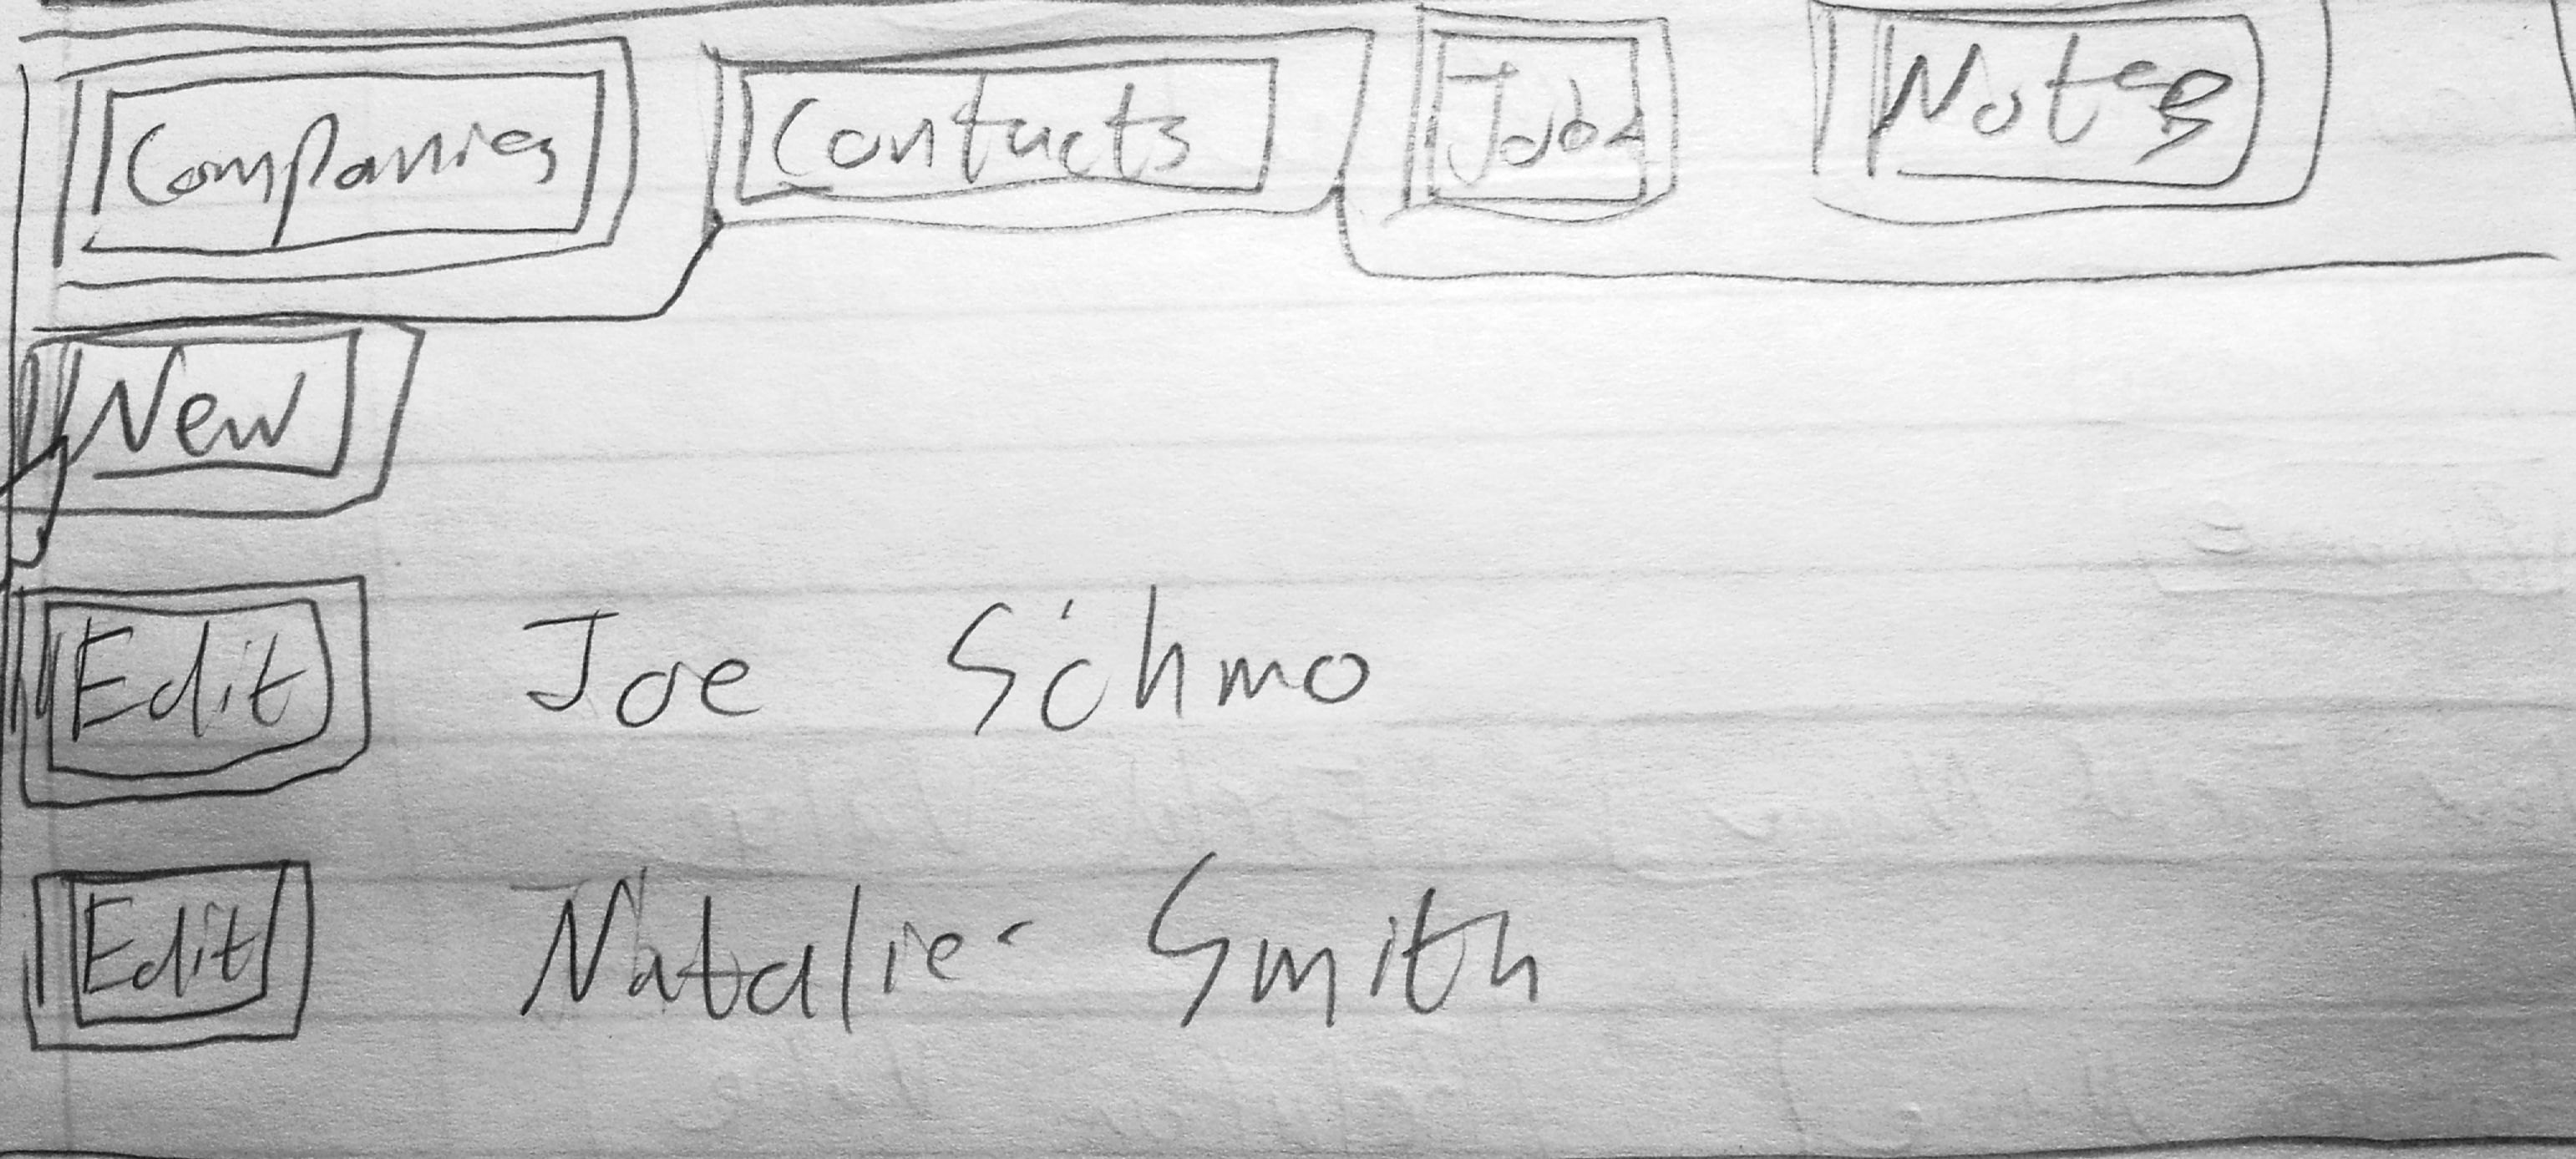 Companies Contacts Jobs Notes
New
Edit Joe Schmo
Edit Natalie Smith